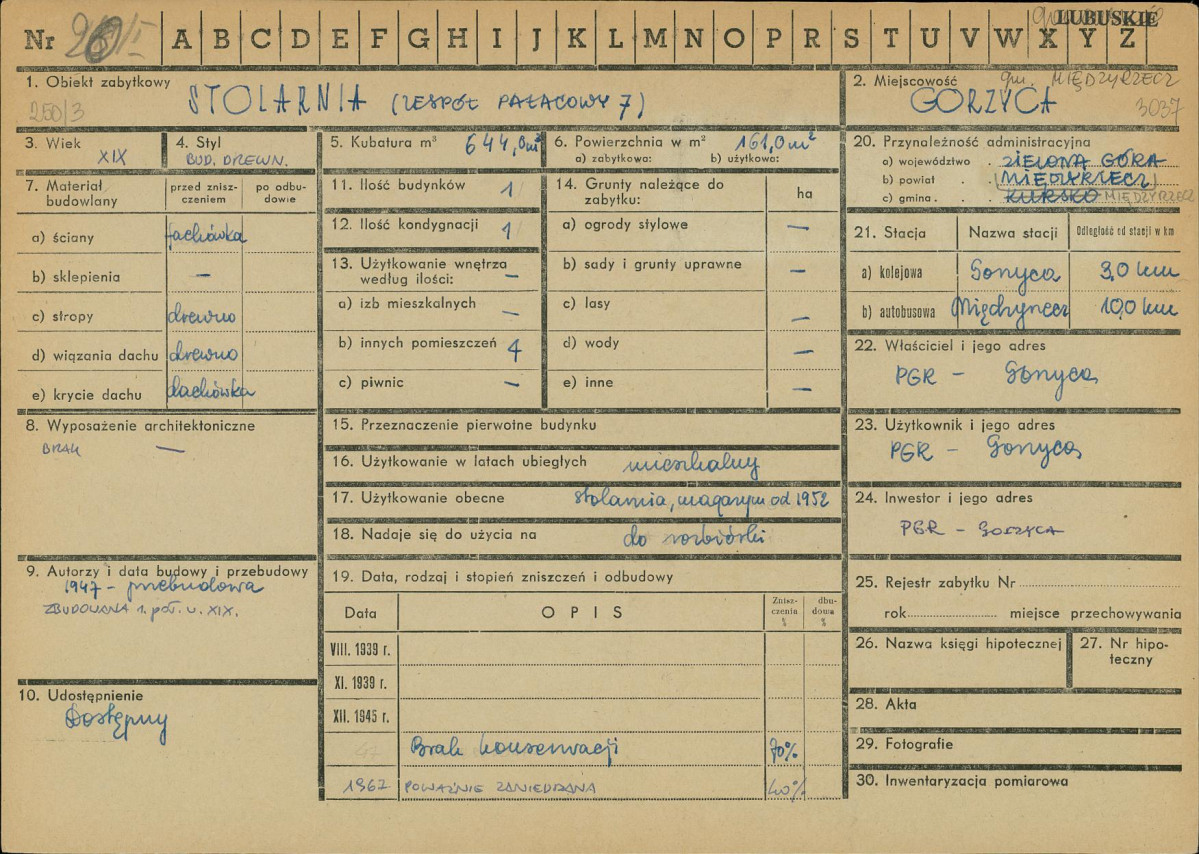 LUBUSKIE
Nr A B C D E F G H I J K L M N O P R S T U V W X Y Z
1. Obiekt zabytkowy
250/3
STOLARNIA (ZESPÓŁ PAŁACOWY 7)
2. Miejscowość gm. MIĘDZYRZECZ
GORZYCA 3037
3. Wiek
XIX
4. Styl
BUD. DREWN.
5. Kubatura m³ 644,0 m³
6. Powierzchnia w m² 161,0 m²
a) zabytkowa: b) użytkowa:
7. Materiał budowlany
przed zniszczeniem
po odbudowie
a) ściany fachówka
b) sklepienia —
c) stropy drewno
d) wiązania dachu drewno
e) krycie dachu dachówka
8. Wyposażenie architektoniczne
BRAK —
9. Autorzy i data budowy i przebudowy
1947 – przebudowa
ZBUDOWANA 1. poł. w. XIX.
10. Udostępnienie
Dostępny
11. Ilość budynków 1
12. Ilość kondygnacji 1
13. Użytkowanie wnętrza
według ilości: —
a) izb mieszkalnych —
b) innych pomieszczeń 4
c) piwnic —
14. Grunty należące do
zabytku:
ha
a) ogrody stylowe —
b) sady i grunty uprawne —
c) lasy —
d) wody —
e) inne —
15. Przeznaczenie pierwotne budynku
16. Użytkowanie w latach ubiegłych mieszkalny
17. Użytkowanie obecne stolarnia, magazyn od 1952
18. Nadaje się do użycia na do rozbiórki
19. Data, rodzaj i stopień zniszczeń i odbudowy
Data
OPIS
Zniszczenia %
dbudowa %
VIII. 1939 r.
XI. 1939 r.
XII. 1945 r.
47 Brak konserwacji 70%
1967 POWAŻNIE ZANIEDBANA 40%
20. Przynależność administracyjna
a) województwo . ZIELONA GÓRA
b) powiat . . (MIĘDZYRZECZ)
c) gmina . . KURSKO MIĘDZYRZECZ
21. Stacja
Nazwa stacji
Odległość od stacji w km
a) kolejowa Gorzyca 3,0 km
b) autobusowa Międzyrzecz 10,0 km
22. Właściciel i jego adres
PGR – Gorzyca
23. Użytkownik i jego adres
PGR – Gorzyca
24. Inwestor i jego adres
PGR – GORZYCA
25. Rejestr zabytku Nr
rok miejsce przechowywania
26. Nazwa księgi hipotecznej
27. Nr hipoteczny
28. Akta
29. Fotografie
30. Inwentaryzacja pomiarowa